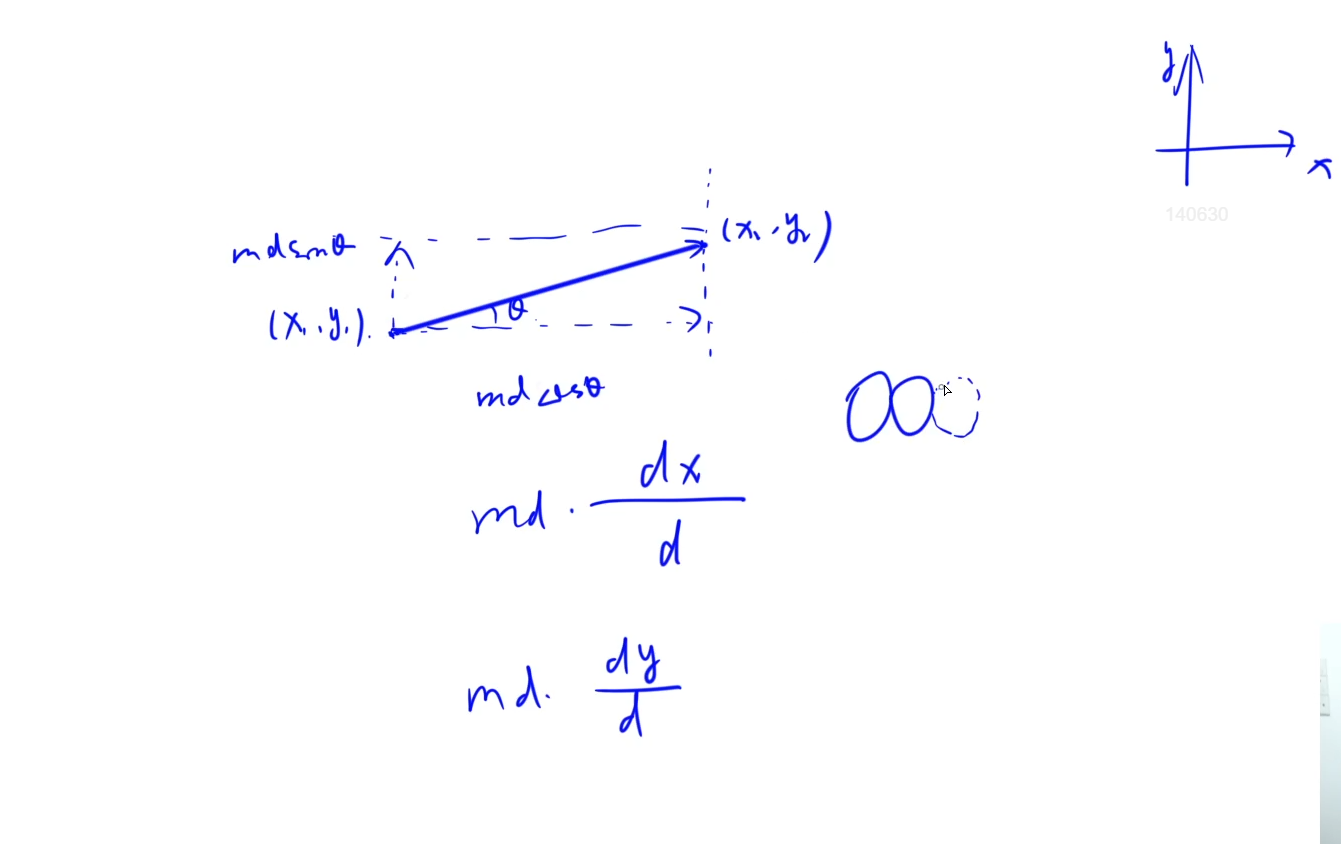 y
x
140630
mdsinθ
(x₁, y₂)
(x₁, y₁)
θ
mdcosθ
md · dx/d
md. dy/d